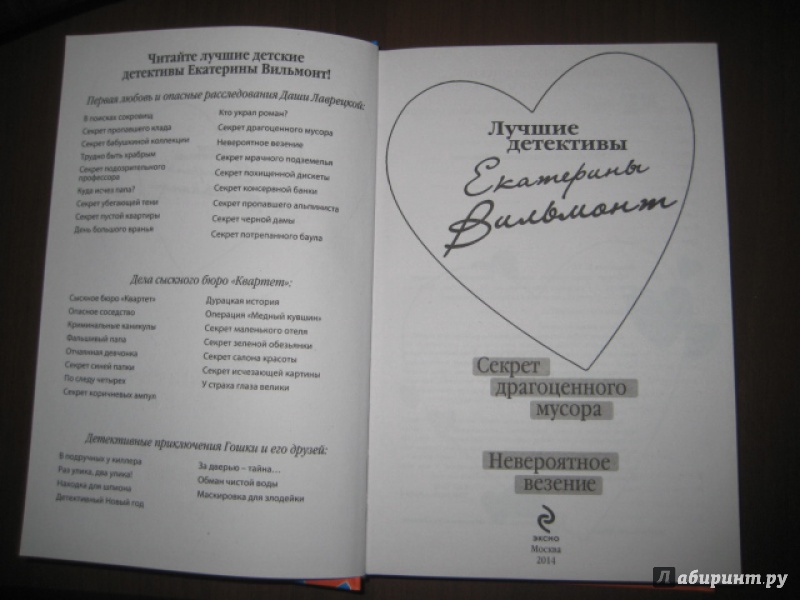 Читайте лучшие детские
детективы Екатерины Вильмонт!
Первая любовь и опасные расследования Даши Лаврецкой:
В поисках сокровищ
Секрет пропавшего клада
Секрет бабушкиной коллекции
Трудно быть храбрым
Секрет подозрительного
профессора
Куда исчез папа?
Секрет убегающей тени
Секрет пустой квартиры
День большого вранья
Кто украл роман?
Секрет драгоценного мусора
Невероятное везение
Секрет мрачного подземелья
Секрет похищенной дискеты
Секрет консервной банки
Секрет пропавшего альпиниста
Секрет черной дамы
Секрет потрепанного баула
Дела сыскного бюро «Квартет»:
Сыскное бюро «Квартет»
Опасное соседство
Криминальные каникулы
Фальшивый папа
Отчаянная девчонка
Секрет синей папки
По следу четырех
Секрет коричневых ампул
Дурацкая история
Операция «Медный кувшин»
Секрет маленького отеля
Секрет зеленой обезьянки
Секрет салона красоты
Секрет исчезающей картины
У страха глаза велики
Детективные приключения Гошки и его друзей:
В подручных у киллера
Раз улика, два улика!
Находка для шпиона
Детективный Новый год
За дверью – тайна...
Обман чистой воды
Маскировка для злодейки
Лучшие
детективы
Екатерины
Вильмонт
Секрет
драгоценного
мусора
Невероятное
везение
ЭКСМО
Москва
2014
Лабиринт.ру